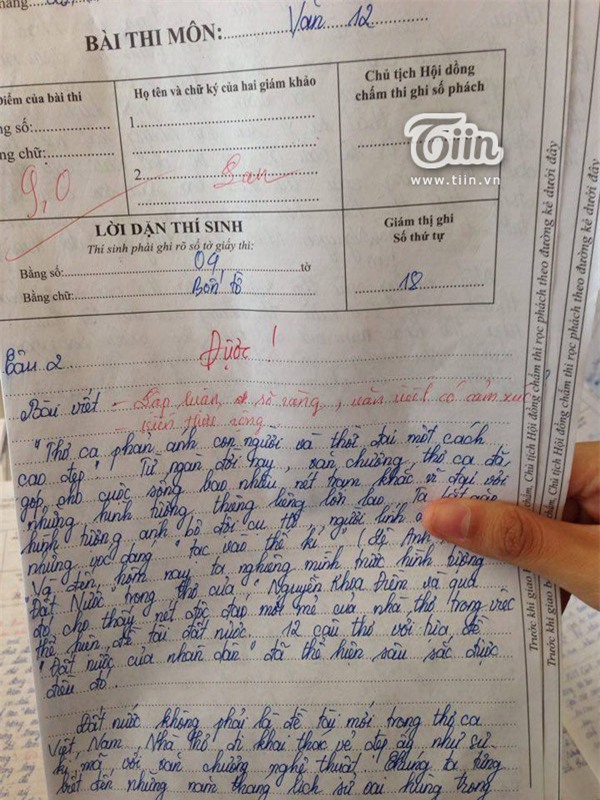 BÀI THI MÔN: Văn 12
Điểm của bài thi
Họ tên và chữ ký của hai giám khảo
Chủ tịch Hội đồng
chấm thi ghi số phách
ng số:
1.
ng chữ:
9,0
2.
Tiin
www.tiin.vn
LỜI DẶN THÍ SINH
Thí sinh phải ghi rõ số tờ giấy thi:
Bằng số: 04 tờ
Bằng chữ: Bốn tờ
Giám thị ghi
Số thứ tự
18
Câu 2
Được!
Bài viết - Lập luận rõ ràng, văn viết có cảm xúc
- kiến thức rộng
"Thơ ca phản ánh con người và thời đại một cách
cao đẹp". Từ ngàn đời nay, văn chương, thơ ca đã
góp cho cuộc sống bao nhiêu nét trạm khắc vĩ đại với
những hình tượng thiêng liêng lớn lao... Ta bắt gặp
hình tượng anh bộ đội cụ Hồ, người lính
những vóc dáng "tạc vào thế kỉ" (Lê Anh
Và đến hôm nay ta nghiêng mình trước hình tượng
"Đất Nước" trong thơ của Nguyễn Khoa Điềm và qua
đó cho thấy nét độc đáo, mới mẻ của nhà thơ trong việc
thể hiện đề tài đất nước. 12 câu thơ với tựa đề
"Đất nước của nhân dân" đã thể hiện sâu sắc được
điều đó.
Đất nước không phải là đề tài mới trong thơ ca
Việt Nam. Nhà thơ đi khai thác vẻ đẹp ấy như sứ
mã với văn chương nghệ thuật. Chúng ta từng
biết đến những năm tháng lịch sử oai hùng trong
Trước khi giao b
phẩm, Chủ tịch Hội đồng chấm thi rọc phách theo đường kẻ dưới đây
Trước khi giao b
phẩm, Chủ tịch Hội đồng chấm thi rọc phách theo đường kẻ dưới đây